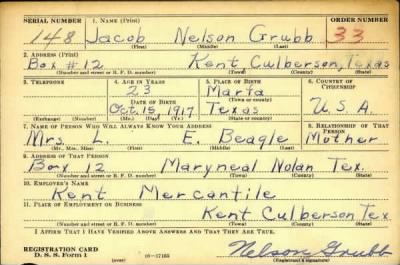 SERIAL NUMBER 1. NAME (Print) ORDER NUMBER
148 Jacob Nelson Grubb 33
(First) (Middle) (Last)
2. ADDRESS (Print)
Box #12 Kent Culberson, Texas
(Number and street or R. F. D. number) (Town) (County) (State)
3. TELEPHONE 4. AGE IN YEARS 5. PLACE OF BIRTH 6. COUNTRY OF CITIZENSHIP
23 Marfa
DATE OF BIRTH (Town or county)
Oct. 15 1917 Texas U.S.A.
(Exchange) (Number) (Mo.) (Day) (Yr.) (State or country)
7. NAME OF PERSON WHO WILL ALWAYS KNOW YOUR ADDRESS 8. RELATIONSHIP OF THAT PERSON
Mrs. L. E. Beagle Mother
(Mr., Mrs., Miss) (First) (Middle) (Last)
9. ADDRESS OF THAT PERSON
Box 12 Maryneal Nolan Tex.
(Number and street or R. F. D. number) (Town) (County) (State)
10. EMPLOYER'S NAME
Kent Mercantile
11. PLACE OF EMPLOYMENT OR BUSINESS
Kent Culberson Tex.
(Number and street or R. F. D. number) (Town) (County) (State)
I AFFIRM THAT I HAVE VERIFIED ABOVE ANSWERS AND THAT THEY ARE TRUE.
REGISTRATION CARD
D. S. S. Form 1 (over) 16-17105 Nelson Grubb
(Registrant's signature)